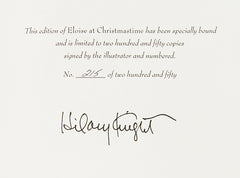 This edition of Eloise at Christmastime has been specially bound
and is limited to two hundred and fifty copies
signed by the illustrator and numbered.
No. 215 of two hundred and fifty
Hilary Knight